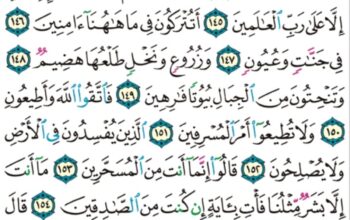 إِلَّا عَلَىٰ رَبِّ ٱلْعَٰلَمِينَ ١٤٥ أَتُتْرَكُونَ فِى مَا هَٰهُنَآ ءَامِنِينَ ١٤٦
فِى جَنَّٰتٍ وَعُيُونٍ ١٤٧ وَزُرُوعٍ وَنَخْلٍ طَلْعُهَا هَضِيمٌ ١٤٨
وَتَنْحِتُونَ مِنَ ٱلْجِبَالِ بُيُوتًا فَٰرِهِينَ ١٤٩ فَٱتَّقُوا۟ ٱللَّهَ وَأَطِيعُونِ
١٥٠ وَلَا تُطِيعُوٓا۟ أَمْرَ ٱلْمُسْرِفِينَ ١٥١ ٱلَّذِينَ يُفْسِدُونَ فِى ٱلْأَرْضِ
وَلَا يُصْلِحُونَ ١٥٢ قَالُوٓا۟ إِنَّمَآ أَنتَ مِنَ ٱلْمُسَحَّرِينَ ١٥٣ مَآ أَنتَ
إِلَّا بَشَرٌ مِّثْلُنَا فَأْتِ بِـَٔايَةٍ إِن كُنتَ مِنَ ٱلصَّٰدِقِينَ ١٥٤ قَالَ